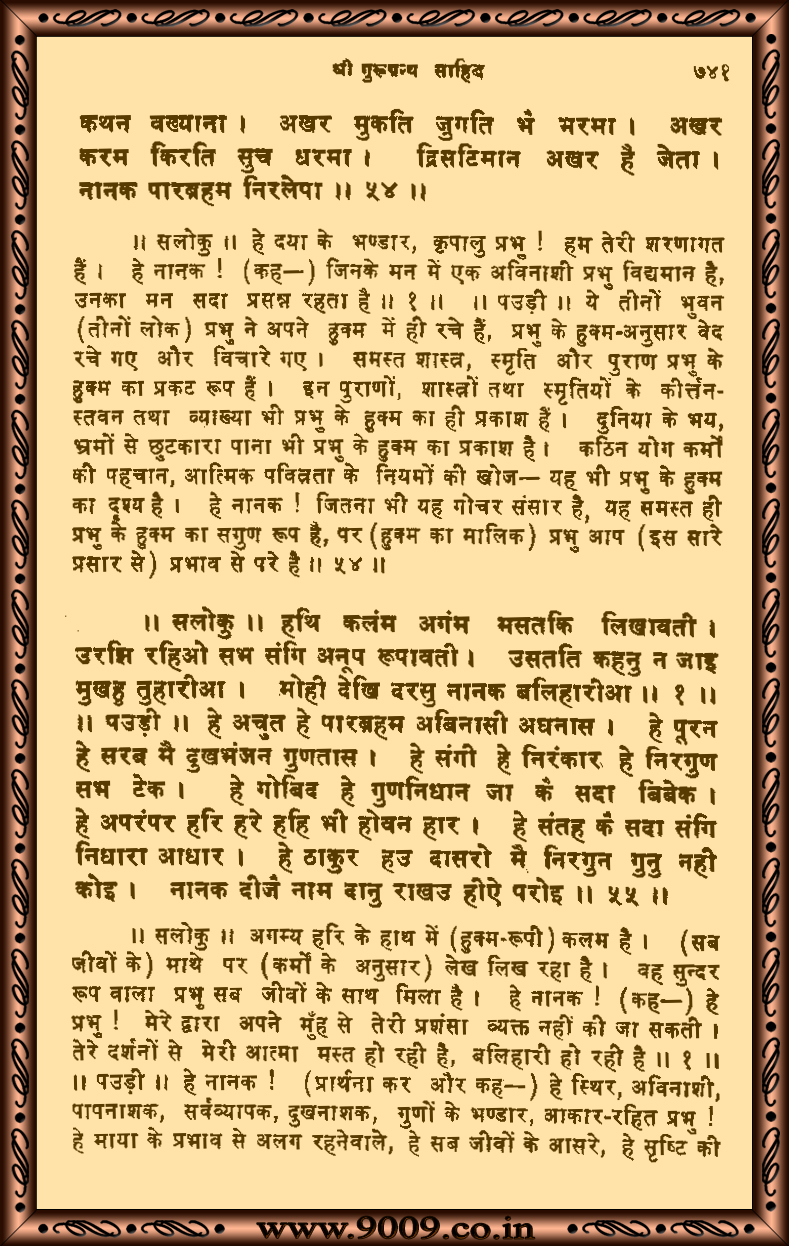 श्री गुरूग्रन्थ साहिब ७४१
कथन वख्याना । अखर मुकति जुगति भै भरमा । अखर
करम किरति सुच धरमा । द्रिसटिमान अखर है जेता ।
नानक पारब्रहम निरलेपा ॥ ५४ ॥
॥ सलोकु ॥ हे दया के भण्डार, कृपालु प्रभु ! हम तेरी शरणागत
हैं । हे नानक ! (कह—) जिनके मन में एक अविनाशी प्रभु विद्यमान है,
उनका मन सदा प्रसन्न रहता है ॥ १ ॥ ॥ पउड़ी ॥ ये तीनों भुवन
(तीनों लोक) प्रभु ने अपने हुक्म में ही रचे हैं, प्रभु के हुक्म-अनुसार वेद
रचे गए और विचारे गए । समस्त शास्त्र, स्मृति और पुराण प्रभु के
हुक्म का प्रकट रूप हैं । इन पुराणों, शास्त्रों तथा स्मृतियों के कीर्त्तन-
स्तवन तथा व्याख्या भी प्रभु के हुक्म का ही प्रकाश हैं । दुनिया के भय,
भ्रमों से छुटकारा पाना भी प्रभु के हुक्म का प्रकाश है । कठिन योग कर्मों
की पहचान, आत्मिक पवित्रता के नियमों की खोज— यह भी प्रभु के हुक्म
का दृश्य है । हे नानक ! जितना भी यह गोचर संसार है, यह समस्त ही
प्रभु के हुक्म का सगुण रूप है, पर (हुक्म का मालिक) प्रभु आप (इस सारे
प्रसार से) प्रभाव से परे है ॥ ५४ ॥
॥ सलोकु ॥ हथि कलंम अगंम मसतकि लिखावती ।
उरझि रहिओ सभ संगि अनूप रूपावती । उसतति कहनु न जाइ
मुखहु तुहारीआ । मोही देखि दरसु नानक बलिहारीआ ॥ १ ॥
॥ पउड़ी ॥ हे अचुत हे पारब्रहम अबिनासी अघनास । हे पूरन
हे सरब मै दुखभंजन गुणतास । हे संगी हे निरंकार हे निरगुण
सभ टेक । हे गोबिद हे गुणनिधान जा कै सदा बिबेक ।
हे अपरंपर हरि हरे हहि भी होवन हार । हे संतह कै सदा संगि
निधारा आधार । हे ठाकुर हउ दासरो मै निरगुन गुनु नही
कोइ । नानक दीजै नाम दानु राखउ हीऐ परोइ ॥ ५५ ॥
॥ सलोकु ॥ अगम्य हरि के हाथ में (हुक्म-रूपी) कलम है । (सब
जीवों के) माथे पर (कर्मों के अनुसार) लेख लिख रहा है । वह सुन्दर
रूप वाला प्रभु सब जीवों के साथ मिला है । हे नानक ! (कह—) हे
प्रभु ! मेरे द्वारा अपने मुँह से तेरी प्रशंसा व्यक्त नहीं की जा सकती ।
तेरे दर्शनों से मेरी आत्मा मस्त हो रही है, बलिहारी हो रही है ॥ १ ॥
॥ पउड़ी ॥ हे नानक ! (प्रार्थना कर और कह—) हे स्थिर, अविनाशी,
पापनाशक, सर्वव्यापक, दुखनाशक, गुणों के भण्डार, आकार-रहित प्रभु !
हे माया के प्रभाव से अलग रहनेवाले, हे सब जीवों के आसरे, हे सृष्टि की
www.9009.co.in